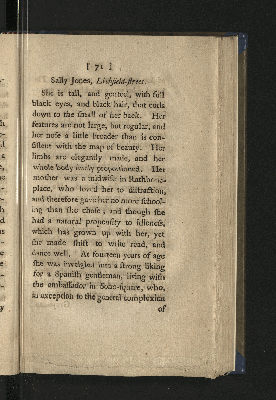 [ 71 ]
Sally Jones, Litchfield-street.
She is tall, and genteel, with full
black eyes, and black hair, that curls
down to the small of her back. Her
features are not large, but regular, and
her nose a little broader than is con-
sistent with the map of beauty. Her
limbs are elegantly made, and her
whole body justly proportioned. Her
mother was a midwife in Rathbone-
place, who loved her to distraction,
and therefore gave her no more school-
ing than she chose; and though she
had a natural propensity to idleness,
which has grown up with her, yet
she made shift to write read, and
dance well. At fourteen years of age
she was inveigled into a strong liking
for a Spanish gentleman, living with
the embassador in Soho-square, who,
in exception to the general complexion
of